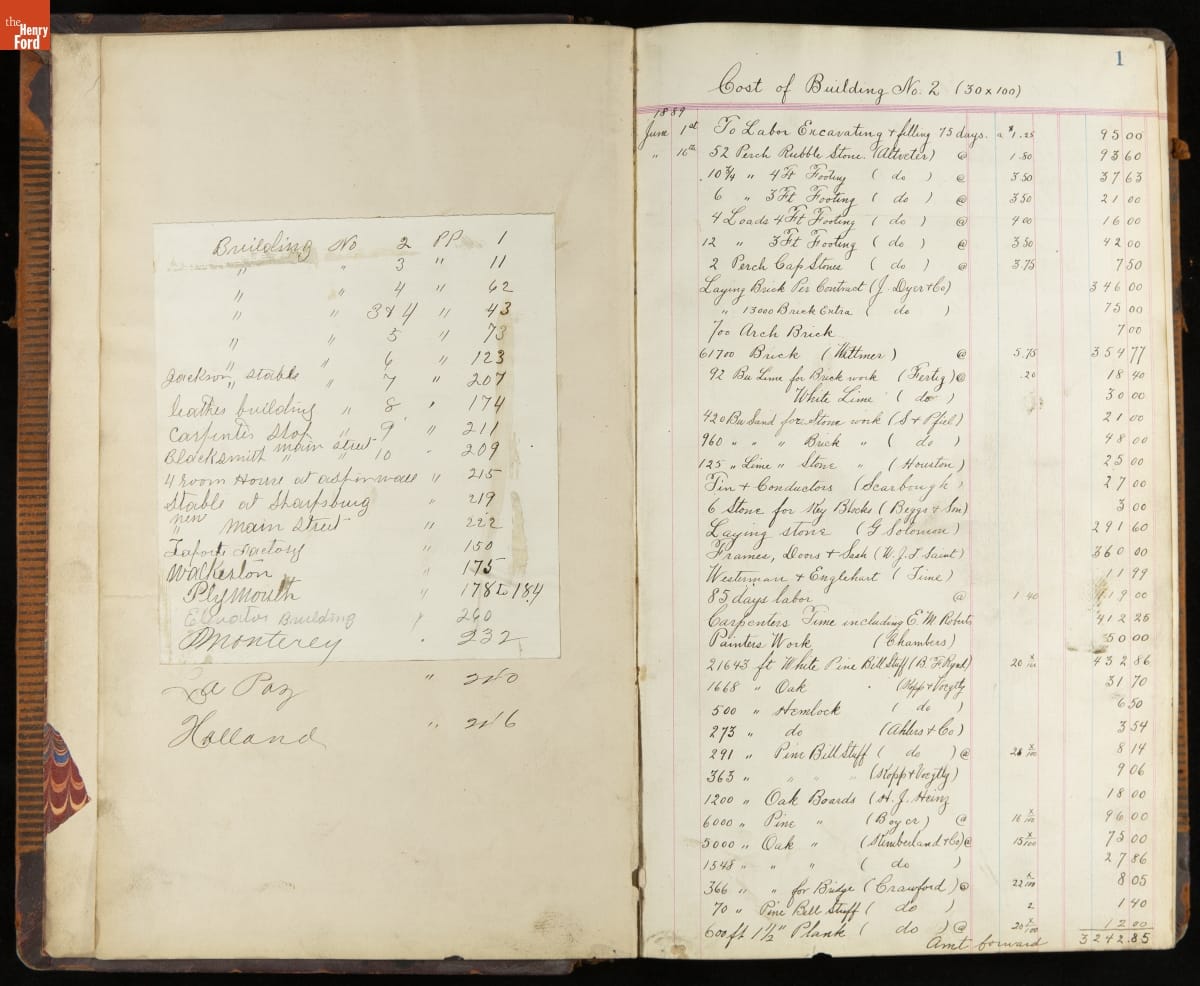 the
Henry
Ford
Building No 2 PP. 1
" " 3 " 11
" " 4 " 62
" " 3&4 " 43
" " 5 " 73
" " 6 " 123
Jackson " Stable " 7 " 207
Leathes building " 8 " 174
Carpenter Shop " 9 " 211
Blacksmith " main Street 10 " 209
4 room House at aspinwall " 215
Stable at Sharpsburg " 219
new " Main Street " 222
Laporte Factory " 150
Walkerton " 175
Plymouth " 178 184
Elevator Building " 260
Monterey " 232
La Paz " 240
Holland " 246
1
Cost of Building No. 2 (30 x 100)
1889
June 1st To Labor Excavating & filling 75 days. a $1.25 95 00
" 10th 52 Perch Rubble Stone. (Altveter) @ 1.80 93 60
10 3/4 " 4 Ft Footing ( do ) @ 3.50 37 63
6 " 3 Ft Footing ( do ) @ 3.50 21 00
4 Loads 4 Ft Footing ( do ) @ 4 00 16 00
12 " 3 Ft Footing ( do ) @ 3.50 42 00
2 Perch Cap Stones ( do ) @ 3.75 7 50
Laying Brick Per Contract (J. Dyer & Co) 346 00
" 13000 Brick Extra ( do ) 75 00
700 Arch Brick 7 00
61700 Brick (Wittmer) @ 5.75 354 77
92 Bu Lime for Brick work (Fertig) @ .20 18 40
White Lime ( do ) 30 00
420 Bu Sand for Stone work (S & Pfiel) 21 00
960 " " " Brick " ( do ) 48 00
125 " Lime " Stone " (Houston) 25 00
Tin & Conductors (Scarbough) 27 00
6 Stone for Key Blocks (Beggs & Son) 3 00
Laying stone (G Solomon) 291 60
Frames, Doors & Sash (W. J. T. Saint) 360 00
Westerman & Englehart (Time) 11 99
85 days labor @ 1 40 119 00
Carpenters Time including E. M. Roberts 412 25
Painters Work (Chambers) 50 00
21643 ft White Pine Bill Stuff (B. F. Rynd) 20 x/100 432 86
1668 " Oak " (Kopp & Voegtly 31 70
500 " Hemlock ( do ) 6 50
273 " do (Ahlers & Co) 3 54
291 " Pine Bill Stuff ( do ) @ 28 x/100 8 14
363 " " " " (Kopp & Voegtly) 9 06
1200 " Oak Boards (H. J. Heinz 18 00
6000 " Pine " (Boyer) @ 16 x/100 96 00
5000 " Oak " (Kimberland & Co) @ 15 x/100 75 00
1548 " " " ( do ) 27 86
366 " " for Bridge (Crawford) @ 22 x/100 8 05
70 " Pine Bill Stuff ( do ) 2 1 40
600 ft 1 1/2" Plank ( do ) @ 20 x/100 12 00
Amt forward 3242.85